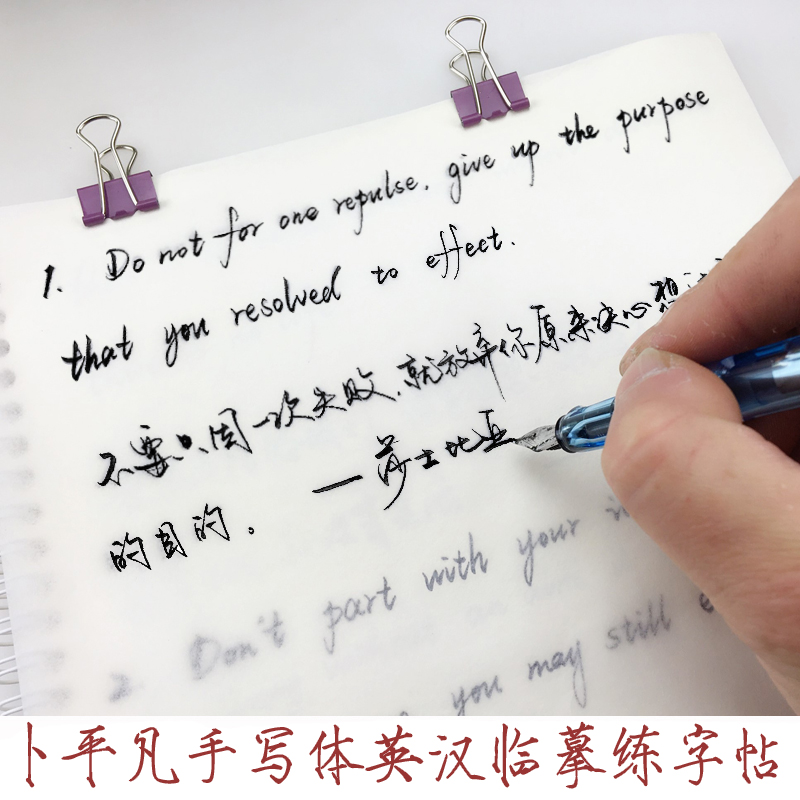 1. Do not for one repulse, give up the purpose
that you resolved to effect.
不要只因一次失败,就放弃你原来决心想
的目的。 — 莎士比亚
2. Don't part with your
you may still
卜平凡手写体英汉临摹练字帖